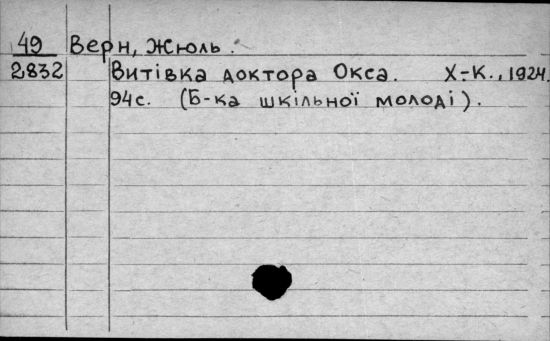 49 Верн, Жюль.
2832 Витівка доктора Окса. Х.-К., 1924.
94с. (Б-ка шкільної молоді).